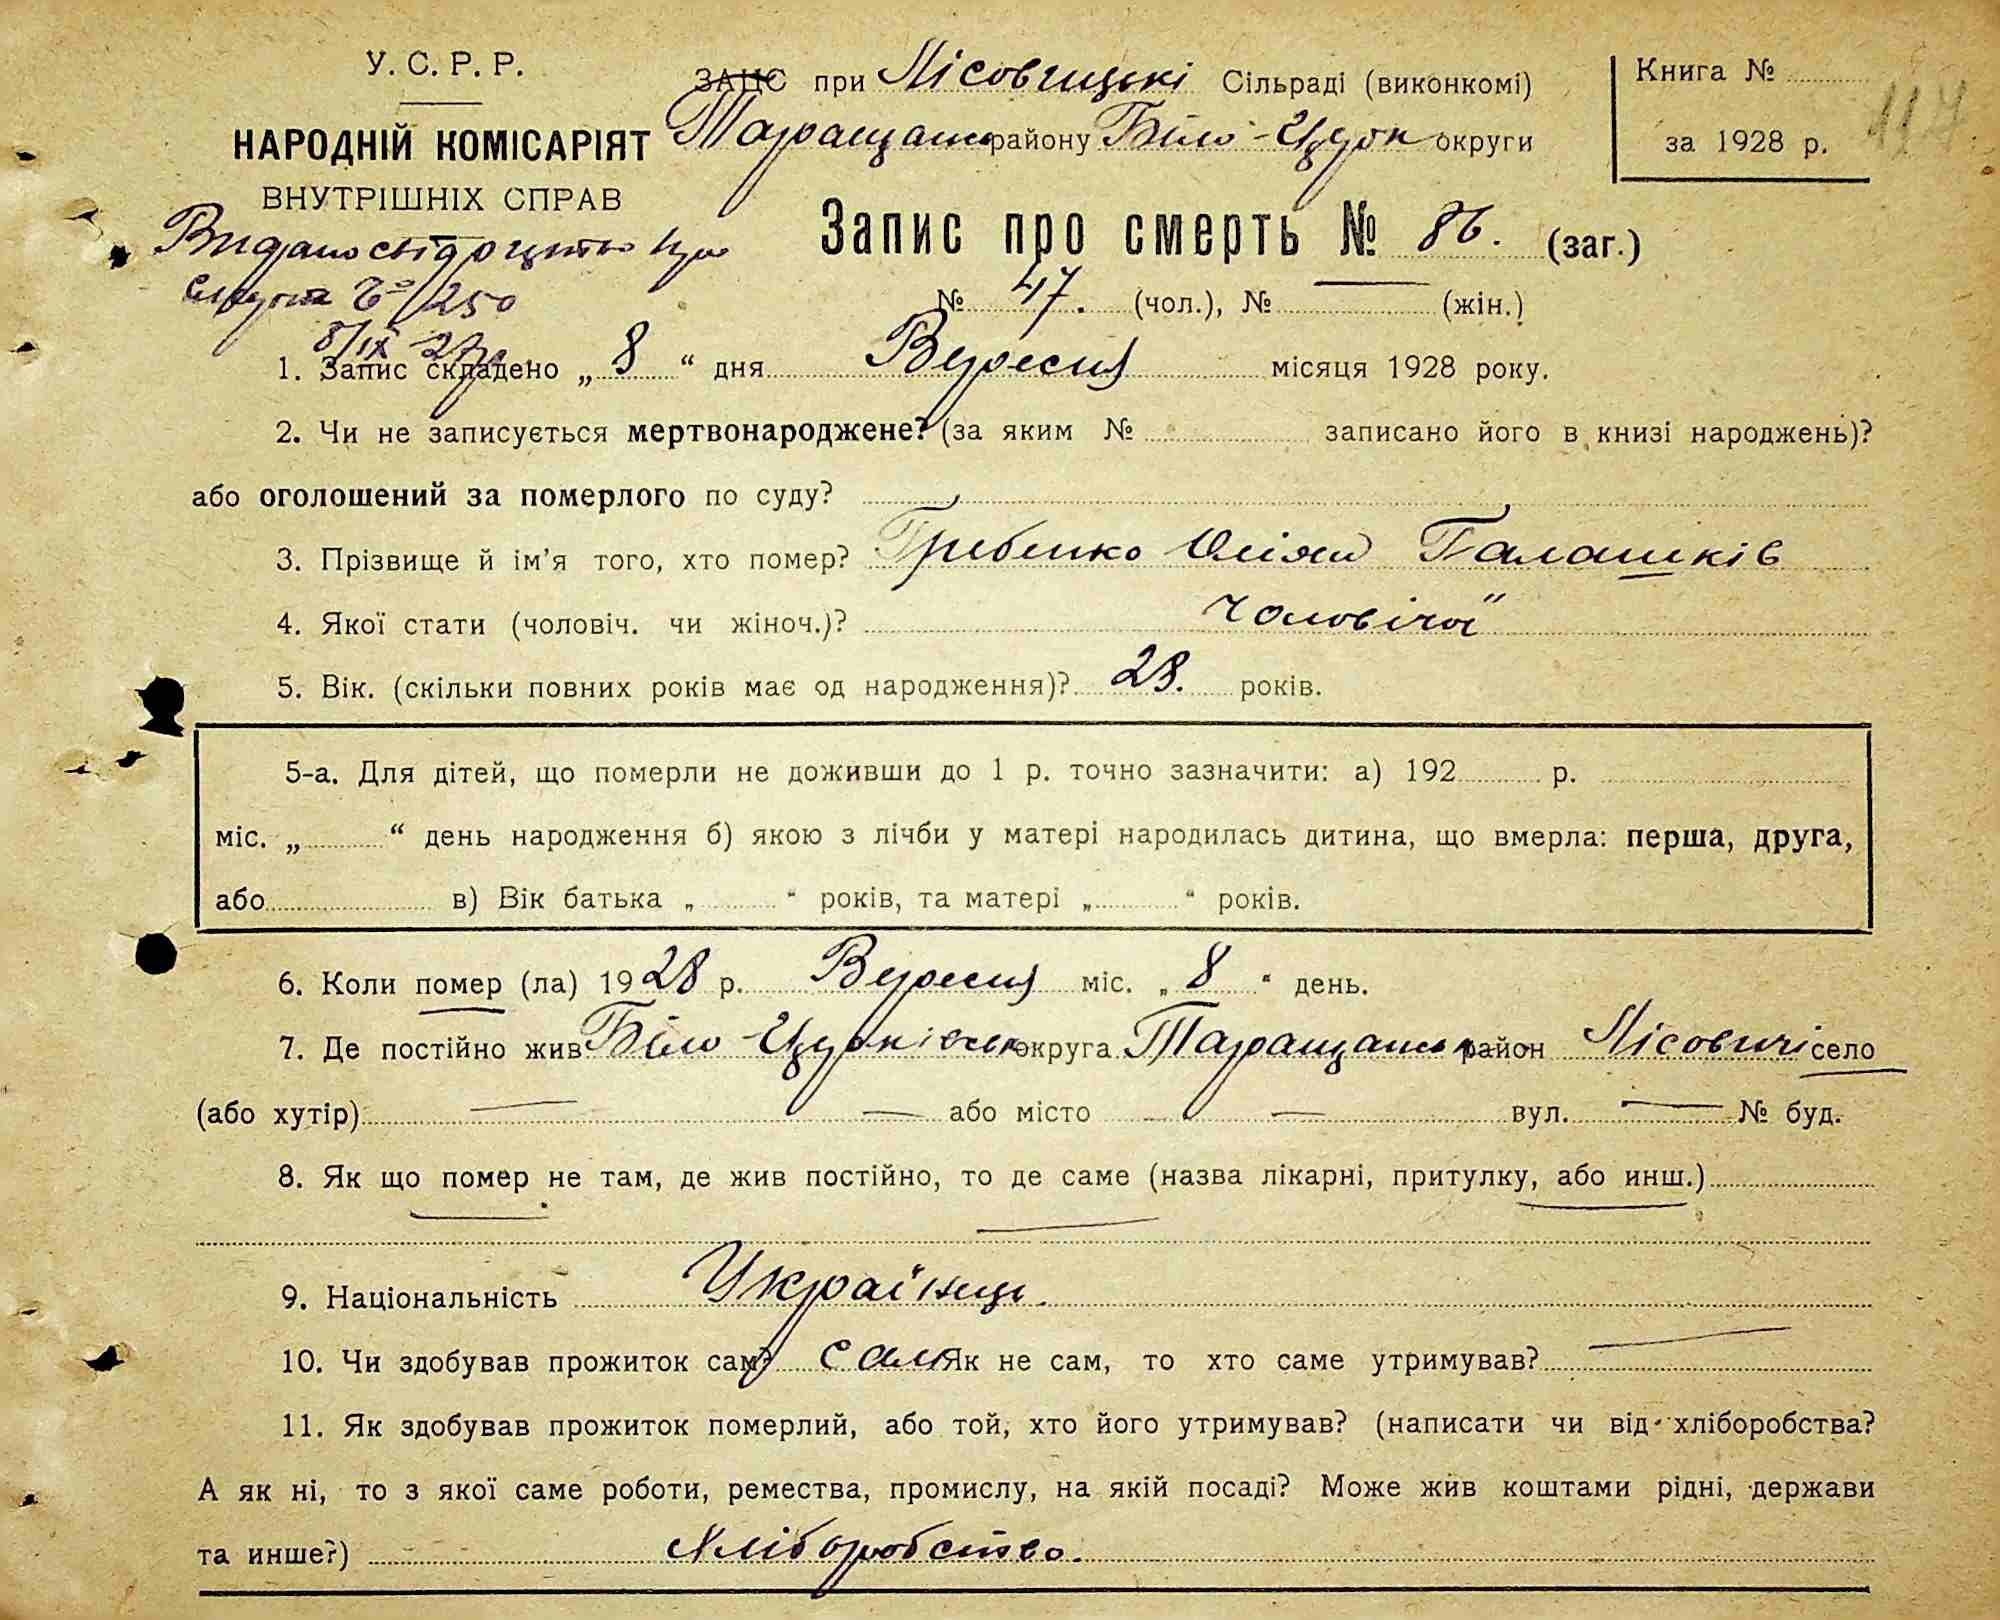 У. С. Р. Р.
НАРОДНІЙ КОМІСАРІЯТ
ВНУТРІШНІХ СПРАВ
ЗАЦС при Лісовицькі Сільраді (виконкомі)
Таращанс району Біло-Церк округи
Книга №
за 1928 р.
117
Видано свідоцтво про
смерть № 250
8/IX 27р
Запис про смерть № 86. (заг.)
№ 47. (чол.), № — (жін.)
1. Запис складено „ 8 “ дня Вересня місяця 1928 року.
2. Чи не записується мертвонароджене? (за яким № записано його в книзі народжень)?
або оголошений за померлого по суду?
3. Прізвище й ім'я того, хто помер? Гребенко Юліян Галашків
4. Якої стати (чоловіч. чи жіноч.)? чоловічої
5. Вік. (скільки повних років має од народження)? 28. років.
5-а. Для дітей, що померли не доживши до 1 р. точно зазначити: а) 192 р.
міс. „ “ день народження б) якою з лічби у матері народилась дитина, що вмерла: перша, друга,
або в) Вік батька „ “ років, та матері „ “ років.
6. Коли помер (ла) 1928 р. Вересня міс. „ 8 “ день.
7. Де постійно жив Біло-Церківськ округа Таращанськ район Лісовичі село
(або хутір) — — або місто — вул. — № буд.
8. Як що помер не там, де жив постійно, то де саме (назва лікарні, притулку, або инш.)
—
9. Національність Українць.
10. Чи здобував прожиток сам? сам Як не сам, то хто саме утримував? —
11. Як здобував прожиток померлий, або той, хто його утримував? (написати чи від хліборобства?
А як ні, то з якої саме роботи, ремества, промислу, на якій посаді? Може жив коштами рідні, держави
та инше?) Хліборобство.